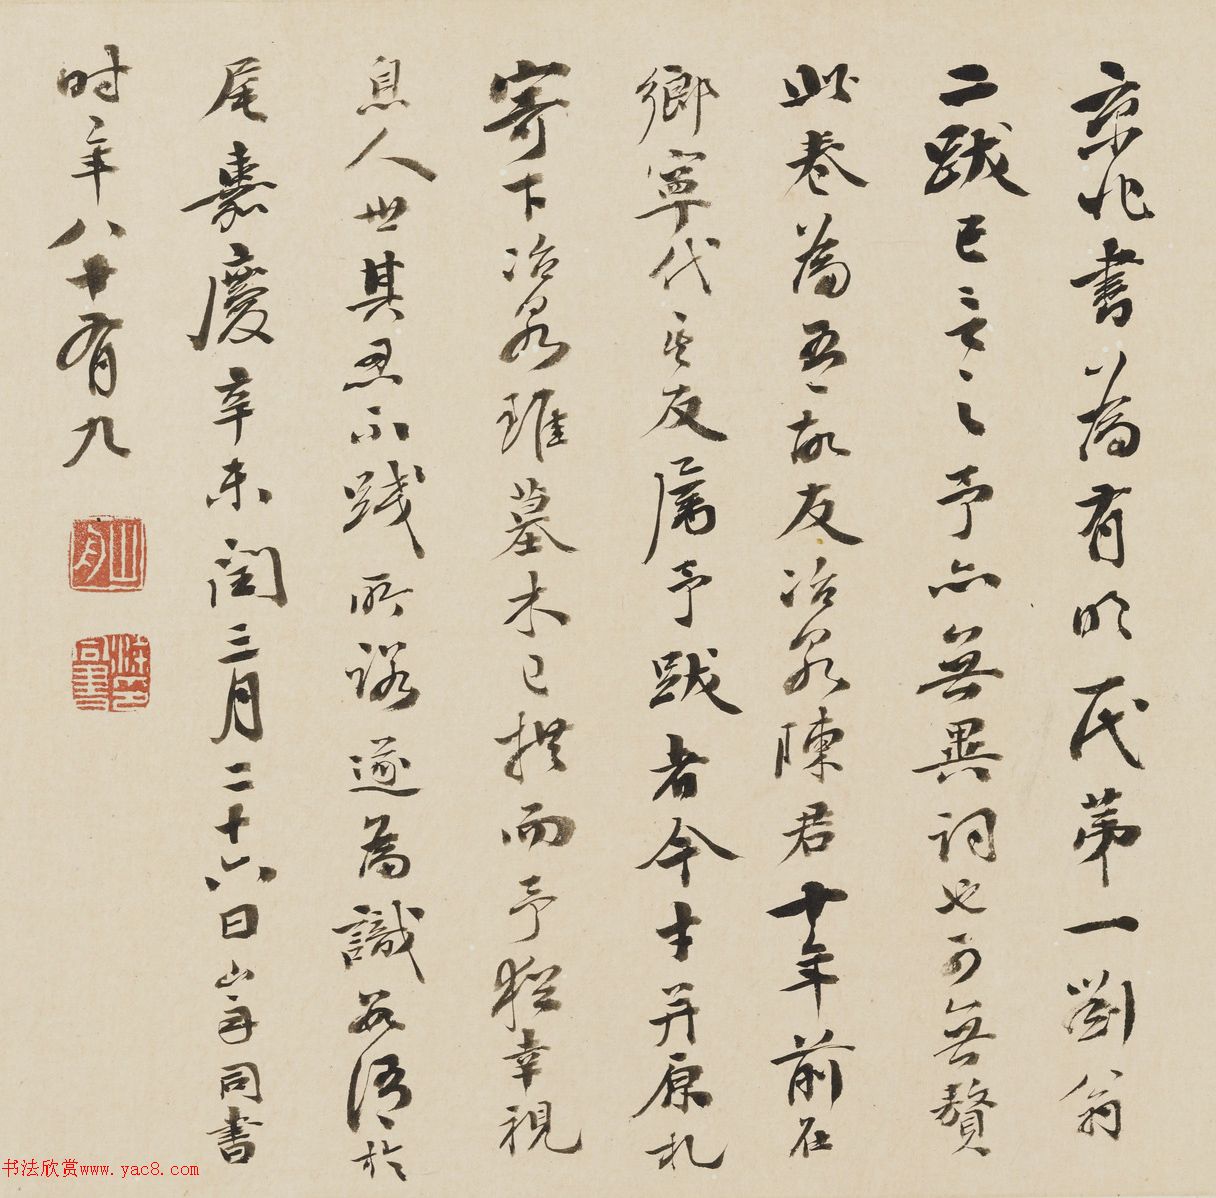 京兆書為有明一代第一劉翁
二跋已言之予亦無異詞也可無贅
此卷為吾故友冶泉陳君十年前在
鄉寧代其友屬予跋者今才并原札
寄下冶泉雖墓木已拱而予猶幸視
息人世其忍不踐所諾遂為識數語於
尾嘉慶辛未閏三月二十六日山舟同書
时年八十有九
山舟
梁同書印
书法欣赏www.yac8.com